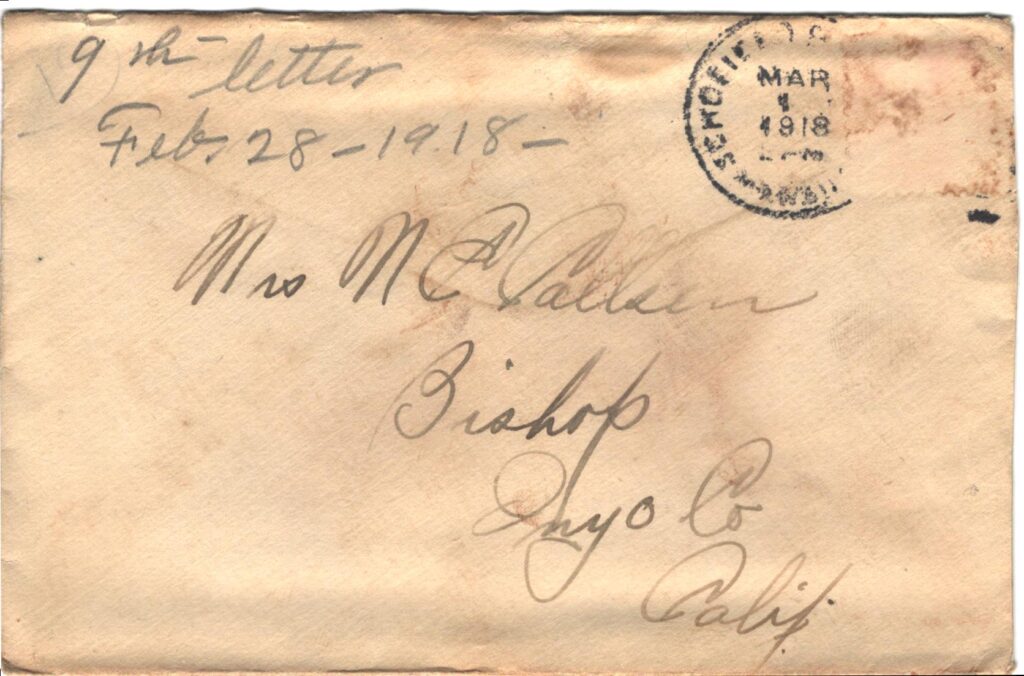 9th letter
Feb 28 - 1918 -
SCHOFIELD
MAR
1
1918
HAWAII
Mrs M E Callsen
Bishop
Inyo Co
Calif.